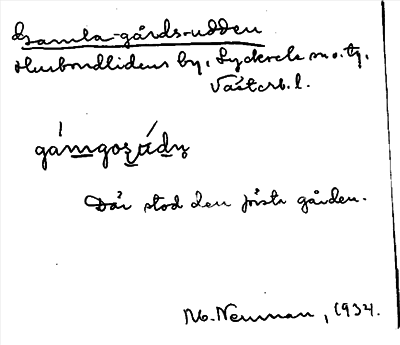 Gamla-gårds-udden
Husbondlidens by, Lycksele sn o. tg,
Västerb. l.
gámgoʂúdn̥
Där stod den första gården.
Nb. Neuman, 1934.